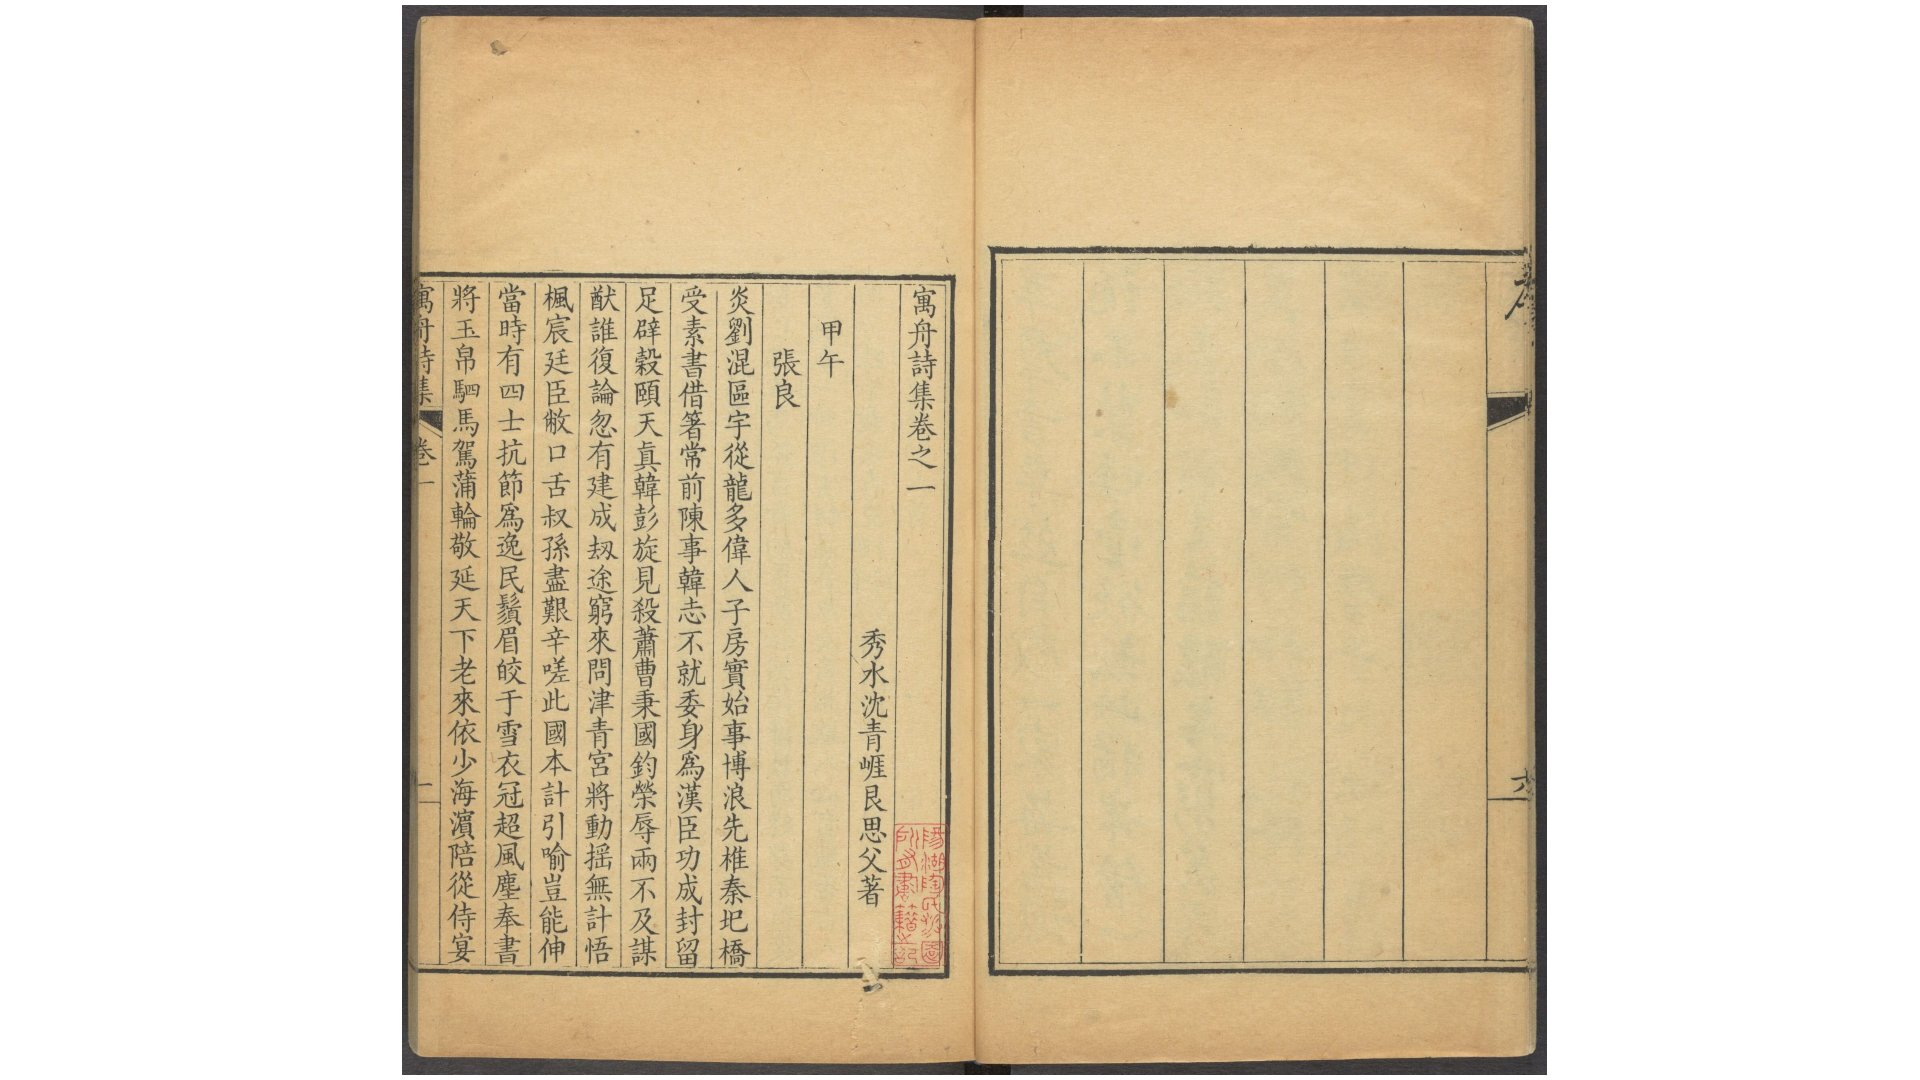 六
寓舟詩集卷之一
秀水沈青崕艮思父著
甲午
張良
炎劉混區宇從龍多偉人子房實始事博浪先椎秦圯橋
受素書借箸常前陳事韓志不就委身爲漢臣功成封留
足辟穀頤天眞韓彭旋見殺蕭曹秉國鈞榮辱兩不及謀
猷誰復論忽有建成刼途窮來問津青宮將動搖無計悟
楓宸廷臣敝口舌叔孫盡艱辛嗟此國本計引喻豈能伸
當時有四士抗節爲逸民鬚眉皎于雪衣冠超風塵奉書
將玉帛駟馬駕蒲輪敬延天下老來依少海濵陪從侍宴
寓舟詩集 卷一 一